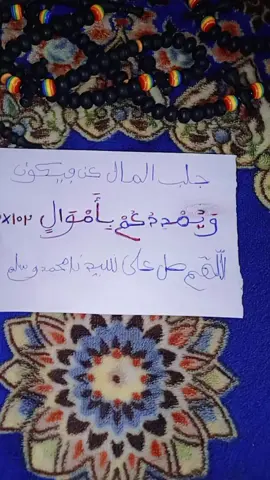 جلب المال كن فيكون
وَيُمْدِدْكُمْ بِأَمْوَالٍ x١٥٢
اللهم صل على سيدنا محمد وسلم